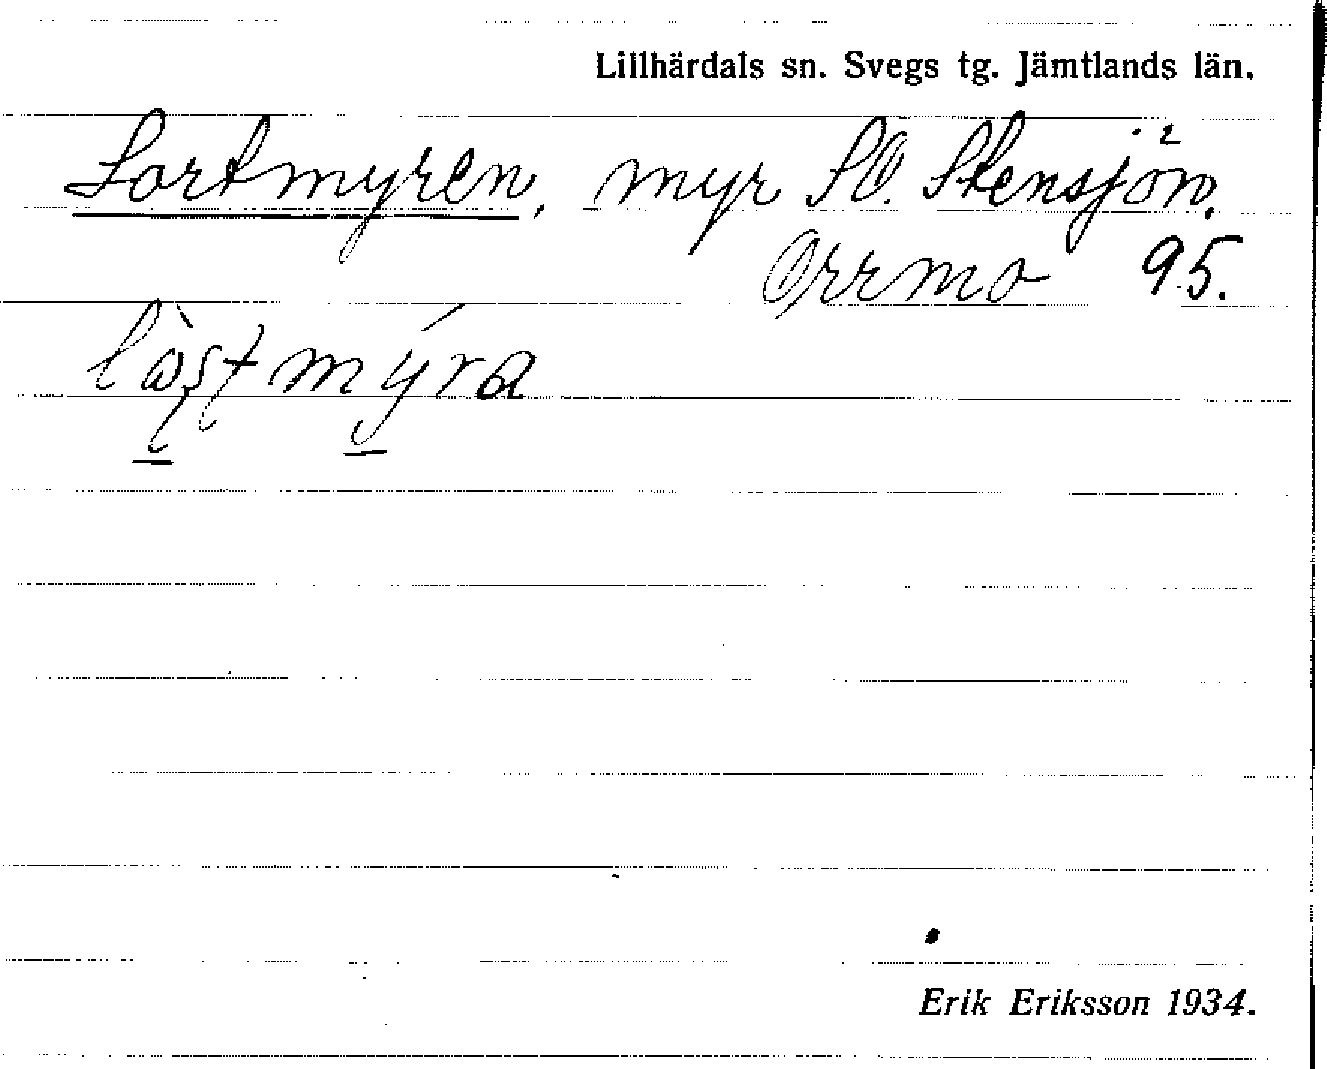 Lillhärdals sn. Svegs tg. Jämtlands län.
Lortmyren, myr SO. Stensjön.
Orrmo 95.
Erik Eriksson 1934.